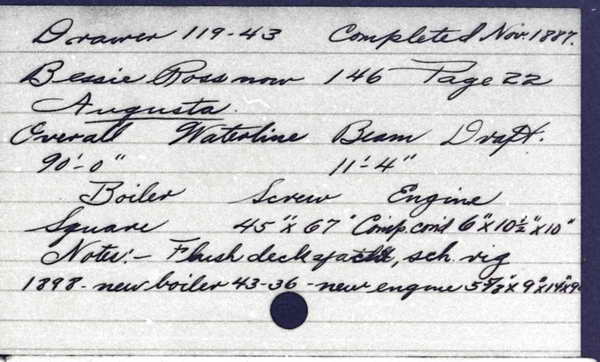 Drawer 119-43 Completed Nov. 1887.
Bessie Ross now 146 Page 22
Augusta.
Overall Waterline Beam Draft.
90'-0" 11'-4"
Boiler Screw Engine
Square 45" x 67" Comp. con'd 6" x 10½" x 10"
Notes:- Flush deck yacht, sch. rig
1898 - new boiler 43-36 - new engine 5⅞" x 9" x 14" x 9